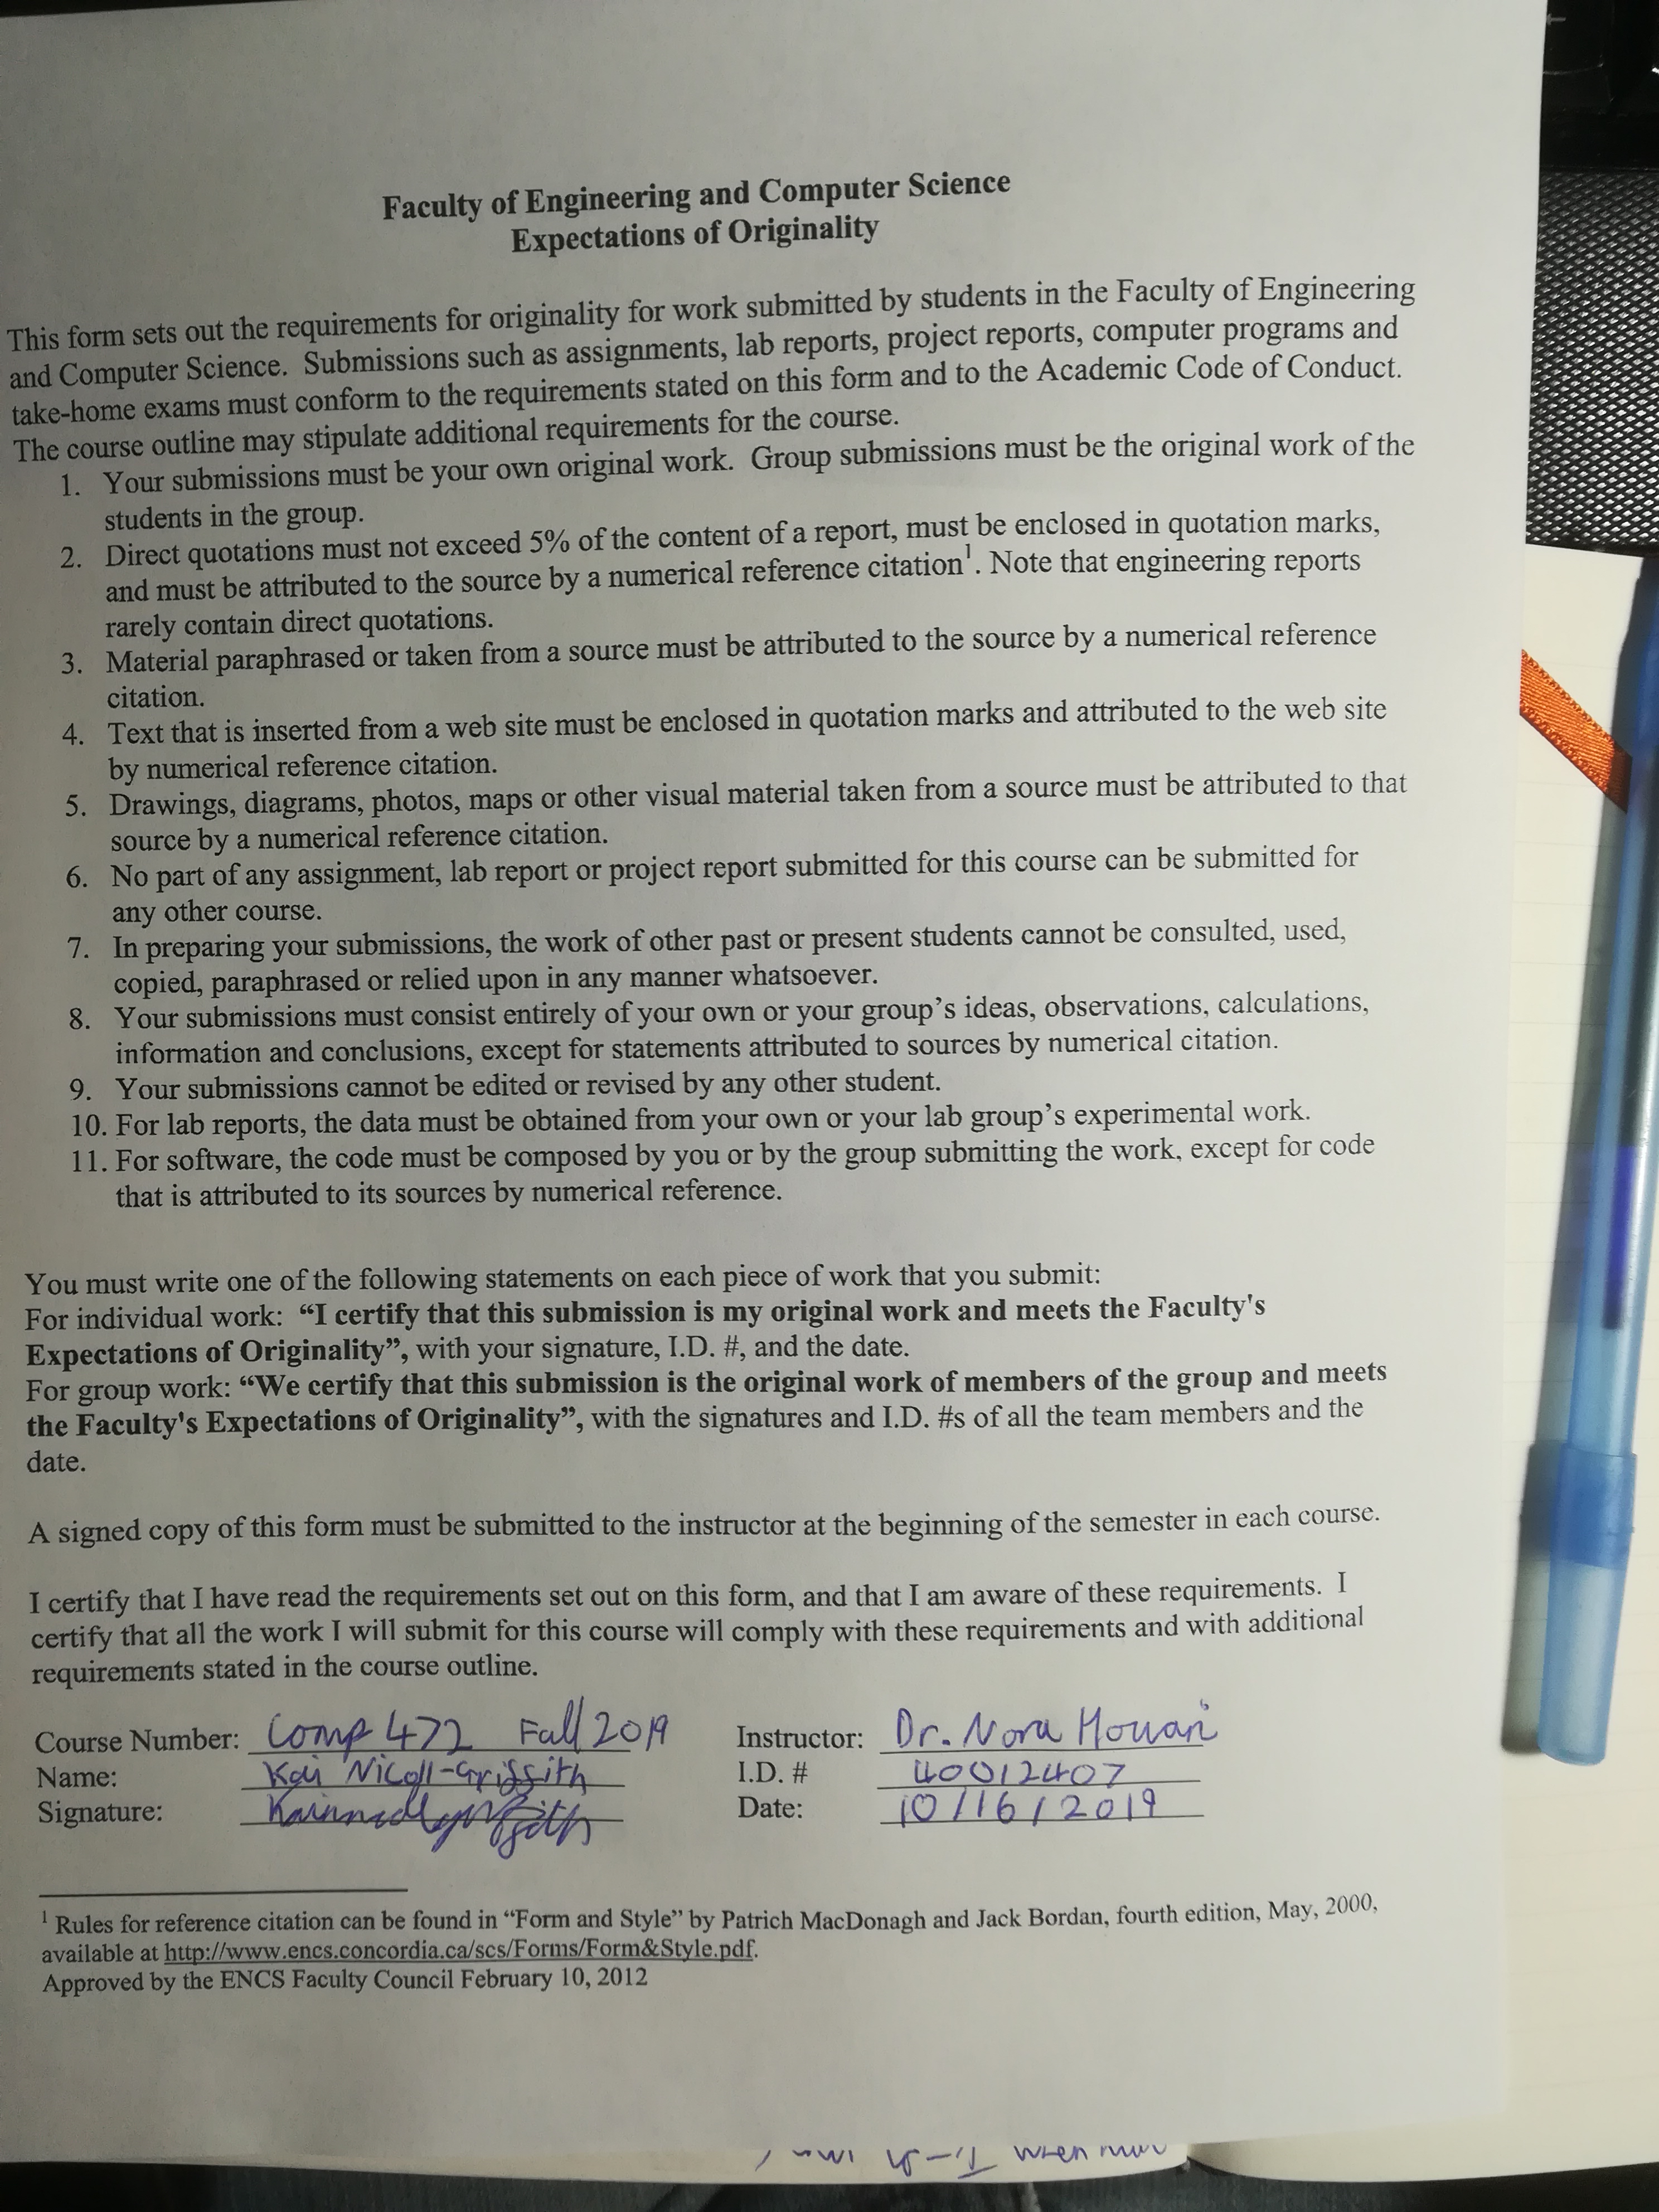 Faculty of Engineering and Computer Science
Expectations of Originality
This form sets out the requirements for originality for work submitted by students in the Faculty of Engineering
and Computer Science. Submissions such as assignments, lab reports, project reports, computer programs and
take-home exams must conform to the requirements stated on this form and to the Academic Code of Conduct.
The course outline may stipulate additional requirements for the course.
1. Your submissions must be your own original work. Group submissions must be the original work of the
students in the group.
2. Direct quotations must not exceed 5% of the content of a report, must be enclosed in quotation marks,
and must be attributed to the source by a numerical reference citation¹. Note that engineering reports
rarely contain direct quotations.
3. Material paraphrased or taken from a source must be attributed to the source by a numerical reference
citation.
4. Text that is inserted from a web site must be enclosed in quotation marks and attributed to the web site
by numerical reference citation.
5. Drawings, diagrams, photos, maps or other visual material taken from a source must be attributed to that
source by a numerical reference citation.
6. No part of any assignment, lab report or project report submitted for this course can be submitted for
any other course.
7. In preparing your submissions, the work of other past or present students cannot be consulted, used,
copied, paraphrased or relied upon in any manner whatsoever.
8. Your submissions must consist entirely of your own or your group’s ideas, observations, calculations,
information and conclusions, except for statements attributed to sources by numerical citation.
9. Your submissions cannot be edited or revised by any other student.
10. For lab reports, the data must be obtained from your own or your lab group’s experimental work.
11. For software, the code must be composed by you or by the group submitting the work, except for code
that is attributed to its sources by numerical reference.
You must write one of the following statements on each piece of work that you submit:
For individual work: “I certify that this submission is my original work and meets the Faculty's
Expectations of Originality”, with your signature, I.D. #, and the date.
For group work: “We certify that this submission is the original work of members of the group and meets
the Faculty's Expectations of Originality”, with the signatures and I.D. #s of all the team members and the
date.
A signed copy of this form must be submitted to the instructor at the beginning of the semester in each course.
I certify that I have read the requirements set out on this form, and that I am aware of these requirements. I
certify that all the work I will submit for this course will comply with these requirements and with additional
requirements stated in the course outline.
Course Number: Comp 472 Fall 2019 Instructor: Dr. Nora Houari
Name: Kai Nicoll-Griffith I.D. # 40012407
Signature: Date: 10/16/2019
¹ Rules for reference citation can be found in “Form and Style” by Patrich MacDonagh and Jack Bordan, fourth edition, May, 2000,
available at http://www.encs.concordia.ca/scs/Forms/Form&Style.pdf.
Approved by the ENCS Faculty Council February 10, 2012